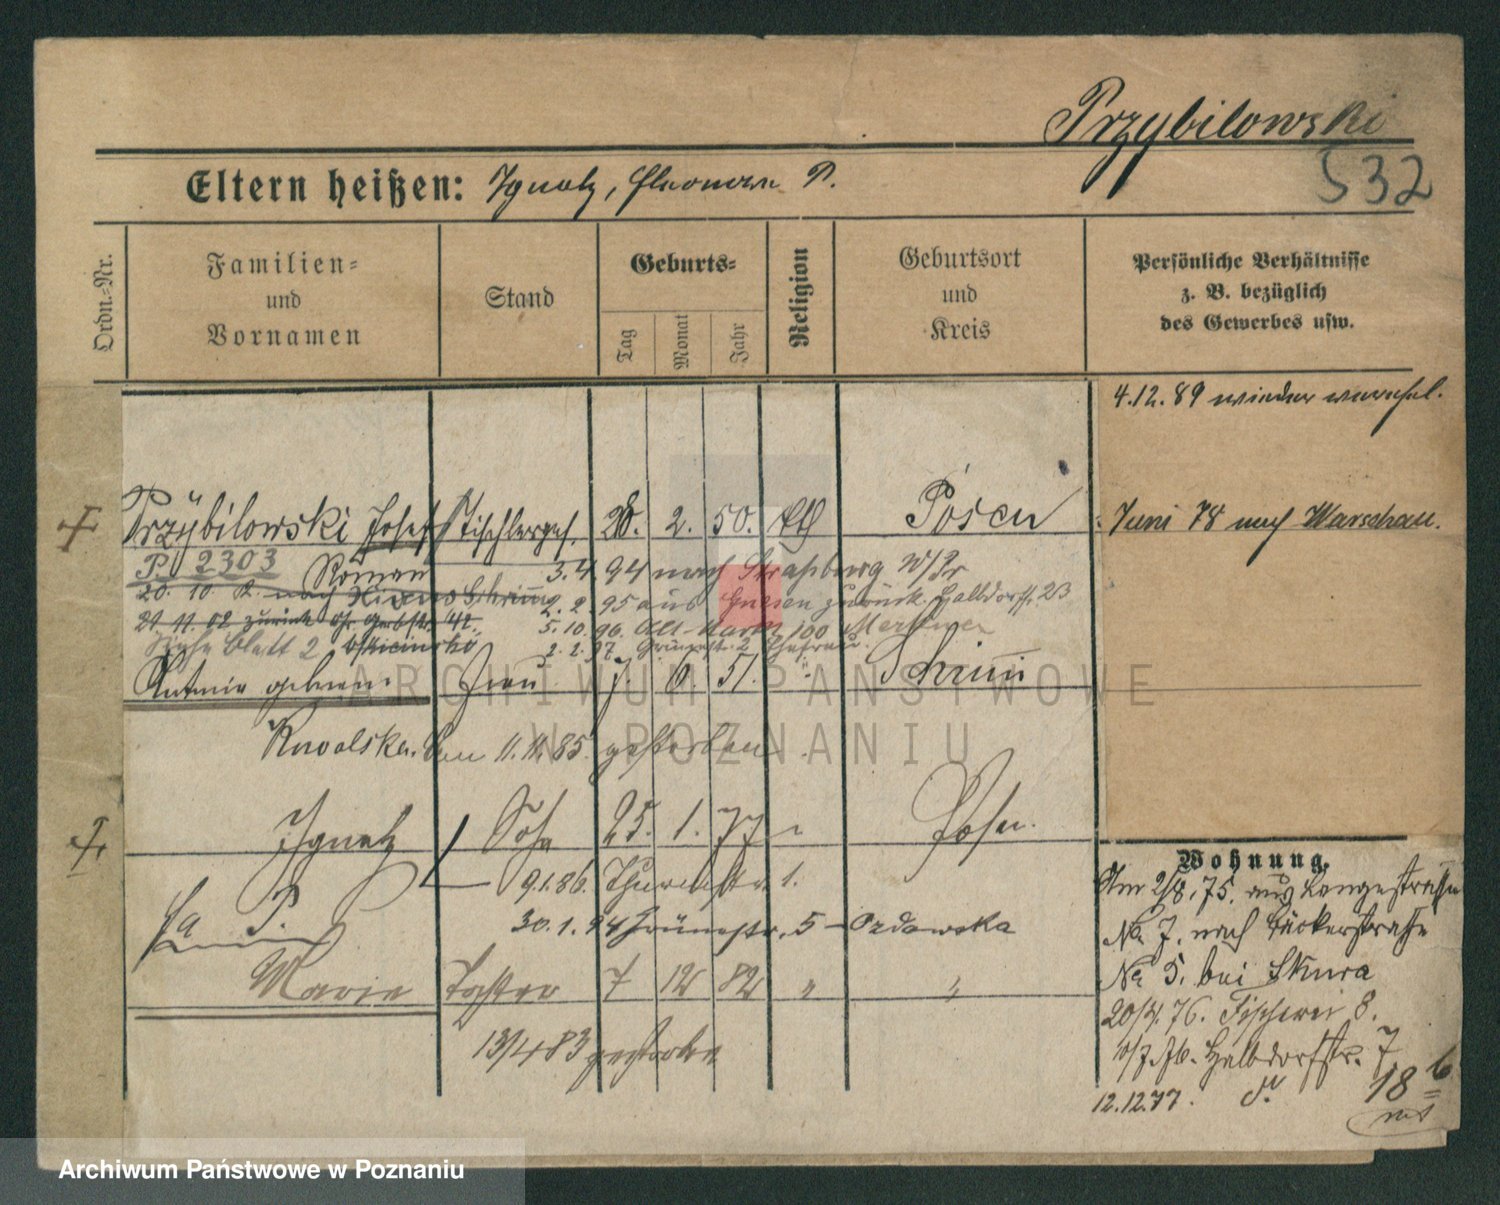 Przybilowski
532
Eltern heißen: Ignatz, Eleonora P.
Ordn.-Nr.
Familien- und Vornamen
Stand
Geburts-
Tag
Monat
Jahr
Religion
Geburtsort und Kreis
Persönliche Verhältnisse z. B. bezüglich des Gewerbes usw.
4.12.89 wieder verehel.
Przÿbilowski Josef Tischlerges. 28. 2. 50. kth Posen
Juni 78 nach Warschau.
P 2303 Roman 3.4.94 nach Straßburg W/Pr
20. 10 nach Schrimm 2.2.95 aus Gnesen zurück. Halbdorfst. 23
21. 11. 02 zurück 42. 5.10.96. Alt-Markt 100
Siehe Blatt 2 2.2.97 Grünestr. 2 Ehefrau
Antonie geborene Frau 7. 6. 51. " Schrimm
Kowalska. den 11.11.85. gestorben
Ignatz Sohn 25. 1. 77 " Posen.
9.1.86. Thurmstr. 1.
30.1.94 Grünestr. 5 - Ozdowska
Marie Tochter 7 12 82 " "
13/4 83 gestorben
Wohnung.
Am 2/8.75. aus Langestrasse
No 7. nach Bäckerstrasse
No 5. bei Skura
20/4.76. Fischerei 8.
10/7.76. Halbdorfstr. 7
12.12.77. 18
ARCHIWUM PAŃSTWOWE
W POZNANIU
Archiwum Państwowe w Poznaniu